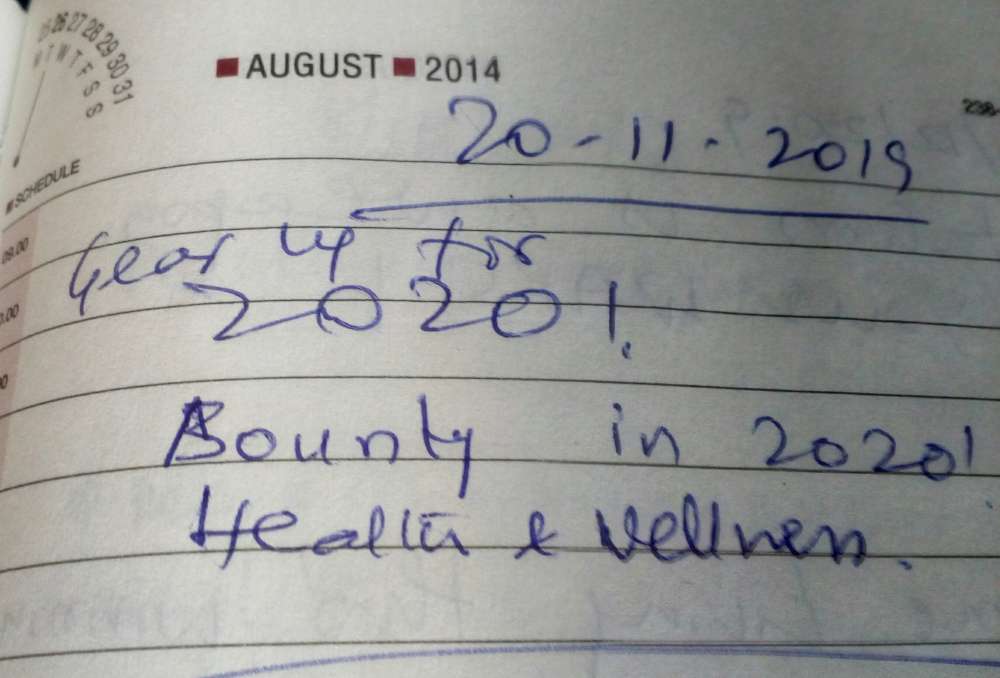 25 26 27 28 29 30 31
M T W T F S S
AUGUST 2014
20-11-2019
SCHEDULE
09.00
Gear up for
2020!
Bounty in 2020!
Health & Wellness.